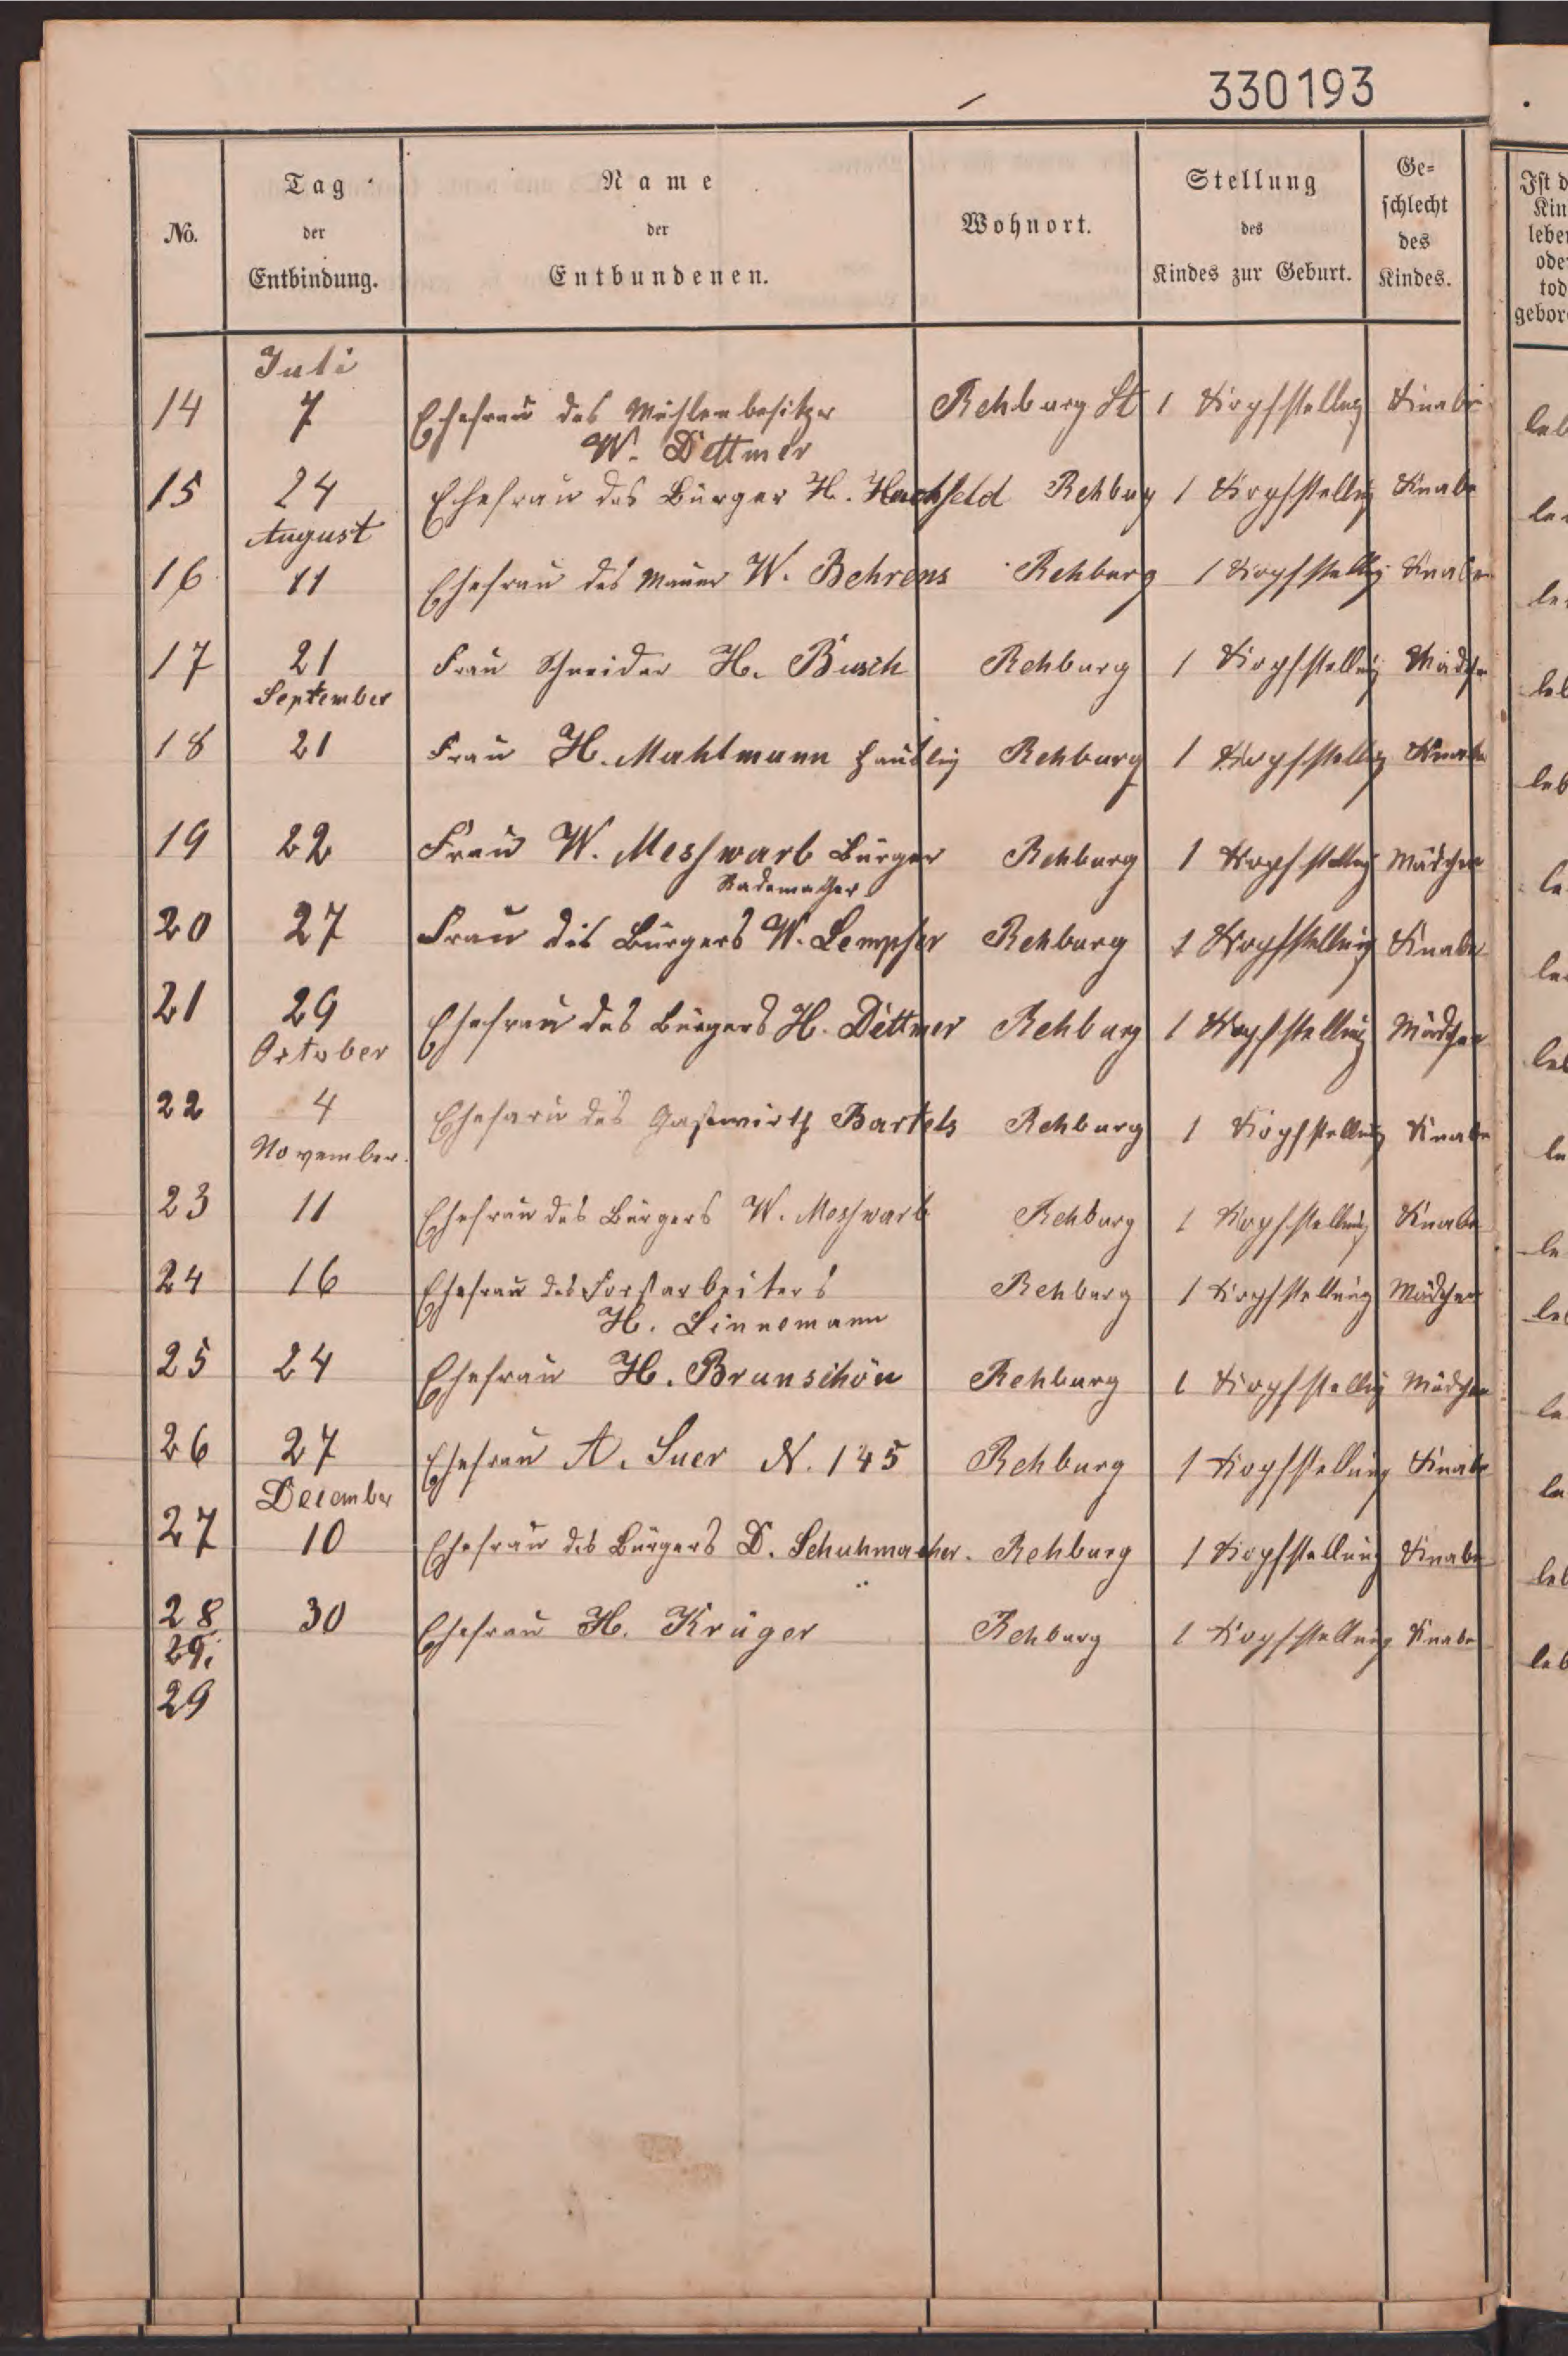 330193
No. Tag der Entbindung. Name der Entbundenen. Wohnort. Stellung des Kindes zur Geburt. Ge=schlecht des Kindes.
Juli
14 7 Ehefrau des Mühlenbesitzer Rehburg St 1 Kopfstellug Knabe
W. Dettmer
15 24 Ehefrau des Bürger H. Hachfeld Rehbug 1 Kopfstellug Knabe
August
16 11 Ehefrau des Maurer W. Behrens Rehburg 1 Kopfstellug Knabe
17 21 Frau Schneider H. Busch Rehburg 1 Kopfstellug Mädche
September
18 21 Frau H. Mahlmann Häusling Rehburg 1 Kopfstellug Knabe
19 22 Frau W. Messwarb Bürger Rehburg 1 Kopfstellug Mädchen
Rademacher
20 27 Frau des Bürgers W. Lempfer Rehburg 1 Kopfstellung Knabe
21 29 Ehefrau des Bürgers H. Dettmer Rehburg 1 Kopfstellung Mädchen
October
22 4 Ehefaru des Gastwirth Bartels Rehburg 1 Kopfstellung Knabe
November.
23 11 Ehefrau des Bürgers W. Messwarb Rehburg 1 Kopfstellung Knabe
24 16 Ehefrau des Forstarbeiters Rehburg 1 Kopfstellung Mädchen
H. Linnemann
25 24 Ehefrau H. Brunschön Rehburg 1 Kopfstellug Mädchen
26 27 Ehefrau A. Suer N. 145 Rehburg 1 Kopfstellung Knabe
December
27 10 Ehefrau des Bürgers D. Schuhmacher. Rehburg 1 Kopfstellung Knabe
28 30 Ehefrau H. Krüger Rehburg 1 Kopfstellung Knabe
29.
29